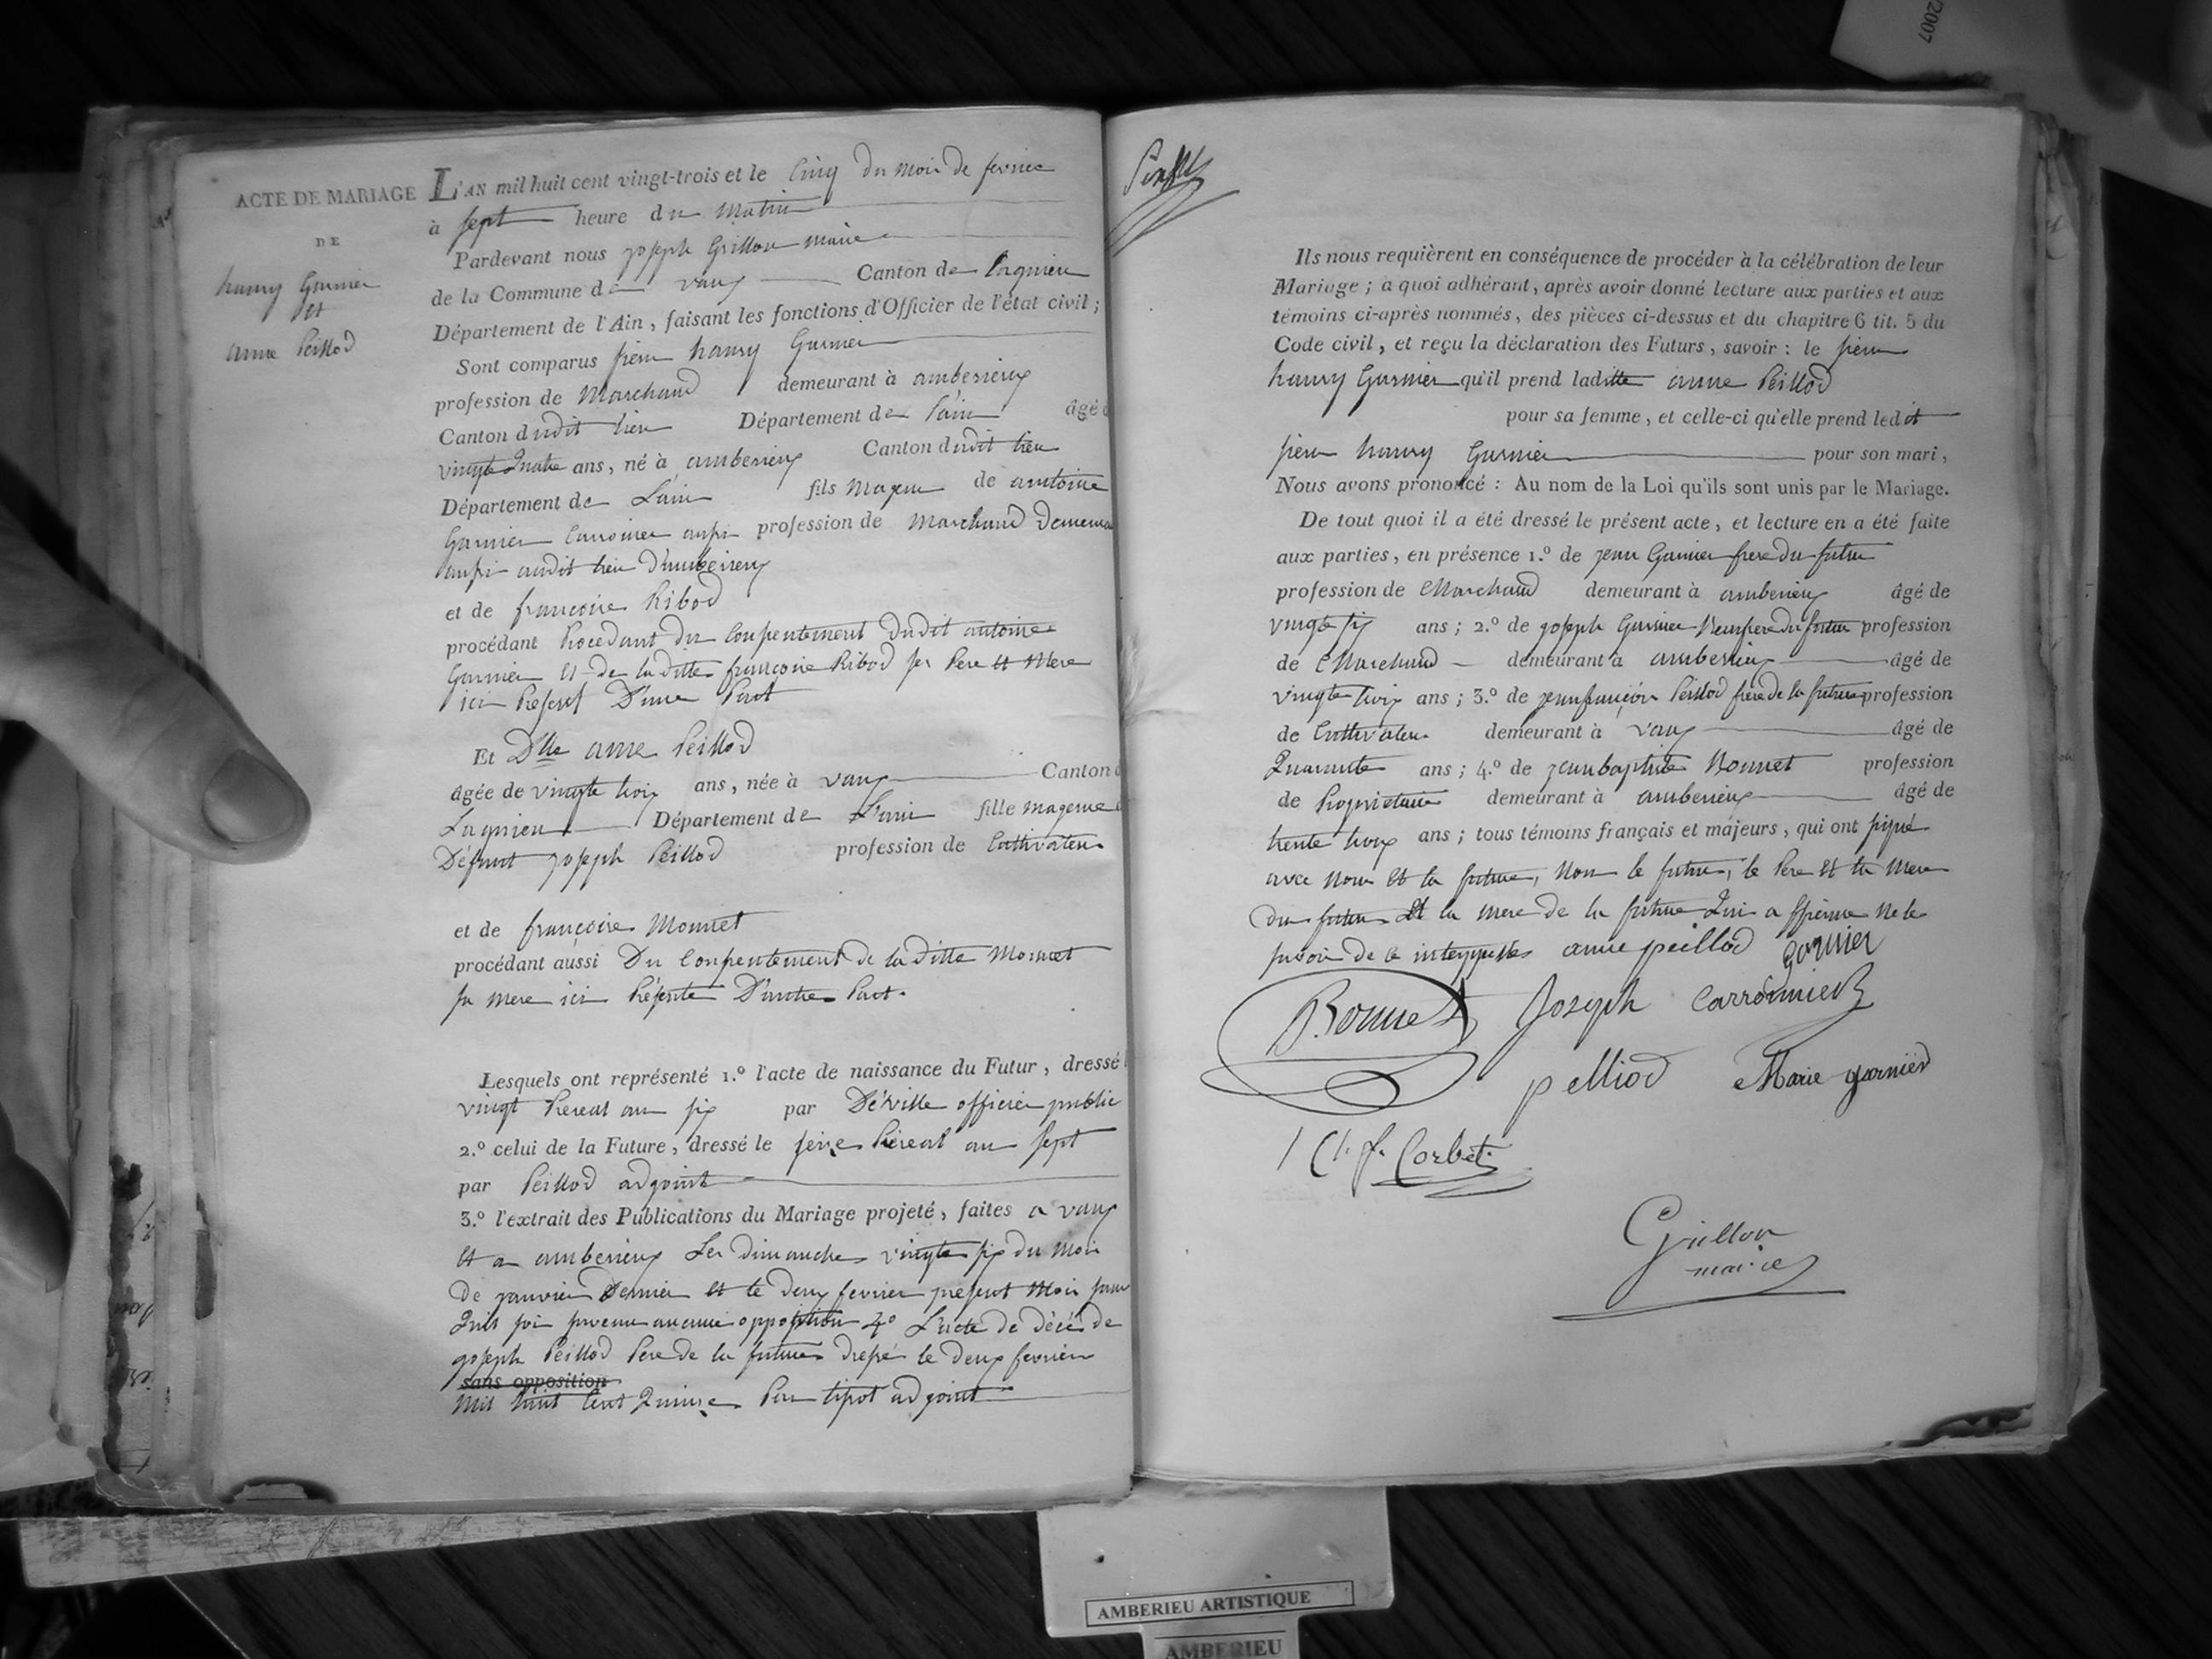 2007
ACTE DE MARIAGE
DE
hanry Garnier
et
anne Peillod
L'AN mil huit cent vingt-trois et le Cinq du mois de fevrier
à sept heure du Matin
Pardevant nous joseph Grillon maire
de la Commune de vaux Canton de Lagnieu
Département de l'Ain, faisant les fonctions d'Officier de l'état civil;
Sont comparus pierre hanry Garnier
profession de Marchand demeurant à amberieux
Canton dudit lieu Département de L'ain âgé
vingte Quatre ans, né à amberieux Canton dudit lieu
Département de L'ain fils Mageur de antoine
Garnier Carronier aussi profession de Marchand
aussi audit lieu D'amberieux
et de françoise Ribod
procédant Procedant du Consentement Dudit antoine
Garnier et de la ditte françoise Ribod ses Pere et Mere
ici D'une Part
Et Dlle anne Peillod
âgée de vingte troix ans, née à vaux Canton
Lagnieu Département de L'ain fille mageure
Défunt joseph Peillod profession de Cultivateur
et de françoise Monnet
procédant aussi Du Consentement de la Ditte Monnet
sa mere ici Présente D'autre Part.
Lesquels ont représenté 1.º l'acte de naissance du Futur, dressé
vingt an six par Déville officier public
2.º celui de la Future, dressé le an sept
par Peillod adjoint
3.º l'extrait des Publications du Mariage projeté, faites a vaux
et a amberieux Les dimanches vingte six du mois
de janvier Dernier et le deux fevrier présent Mois sans
Quil soit aucune opposition 4º L'acte de décès de
joseph Peillod Pere de la future dressé le deux fevrier
sans opposition
Mil huit Cent Quinze Par tipot adjoint
Ils nous requièrent en conséquence de procéder à la célébration de leur
Mariage; a quoi adhérant, après avoir donné lecture aux parties et aux
témoins ci-après nommés, des pièces ci-dessus et du chapitre 6 tit. 5 du
Code civil, et reçu la déclaration des Futurs, savoir: le pierre
hanry Garnier qu'il prend laditte anne Peillod
pour sa femme, et celle-ci qu'elle prend ledit
pierre hanry Garnier pour son mari,
Nous avons prononcé: Au nom de la Loi qu'ils sont unis par le Mariage.
De tout quoi il a été dressé le présent acte, et lecture en a été faite
aux parties, en présence 1.º de jean Garnier frere du futur
profession de Marchand demeurant à amberieux âgé de
vingte six ans; 2.º de joseph Garnier profession
de Marchand demeurant à amberieux âgé de
vingte troix ans; 3.º de jeanfrançois Peillod frere de la future profession
de Cultivateur demeurant à vaux âgé de
Quarante ans; 4.º de jeanbaptiste Bonnet profession
de Proprietaire demeurant à amberieux âgé de
trente troix ans; tous témoins français et majeurs, qui ont signé
avec nous et la future, Non le futur, le Pere et la Mere
du futur et la mere de la future Qui ne le
savoir de ce anne peillod Garnier
Bonnet Joseph Carronnier
pelliod Marie garnier
Cl. f. Corbet
Grillon
maire
AMBERIEU ARTISTIQUE
AMBERIEU